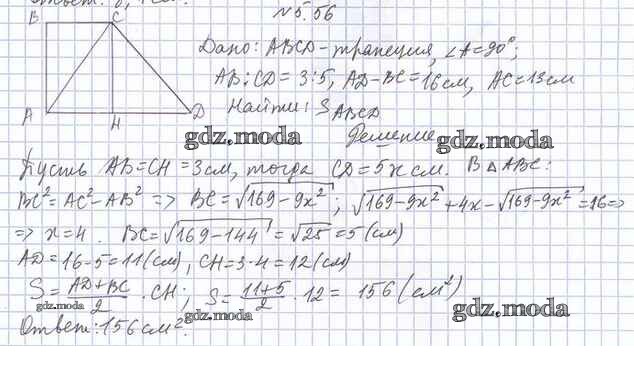 №5.56
B C
Дано: ABCD-трапеция, ∠A=90°;
AB:CD=3:5, AD-BC=16см, AC=13см
A H D
Найти: S ABCD
gdz.moda
Решение
gdz.moda
Пусть AB=CH=3см, тогда CD=5x см. В △ABC:
BC²=AC²-AB² => BC=√169-9x²; √169-9x²+4x-√169-9x²=16=>
=> x=4. BC=√169-144=√25=5(см)
AD=16-5=11(см), CH=3·4=12(см)
S=AD+BC/2·CH; S=11+5/2·12=156(см²)
gdz.moda
gdz.moda
gdz.moda
Ответ: 156см².